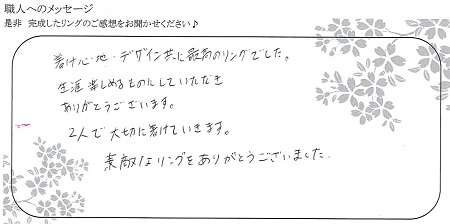 職人へのメッセージ
是非 完成したリングのご感想をお聞かせください♪
着け心地・デザイン共に最高のリングでした。
生涯楽しめるものにしていただき
ありがとうございます。
2人で大切に着けていきます。
素敵なリングをありがとうございました.